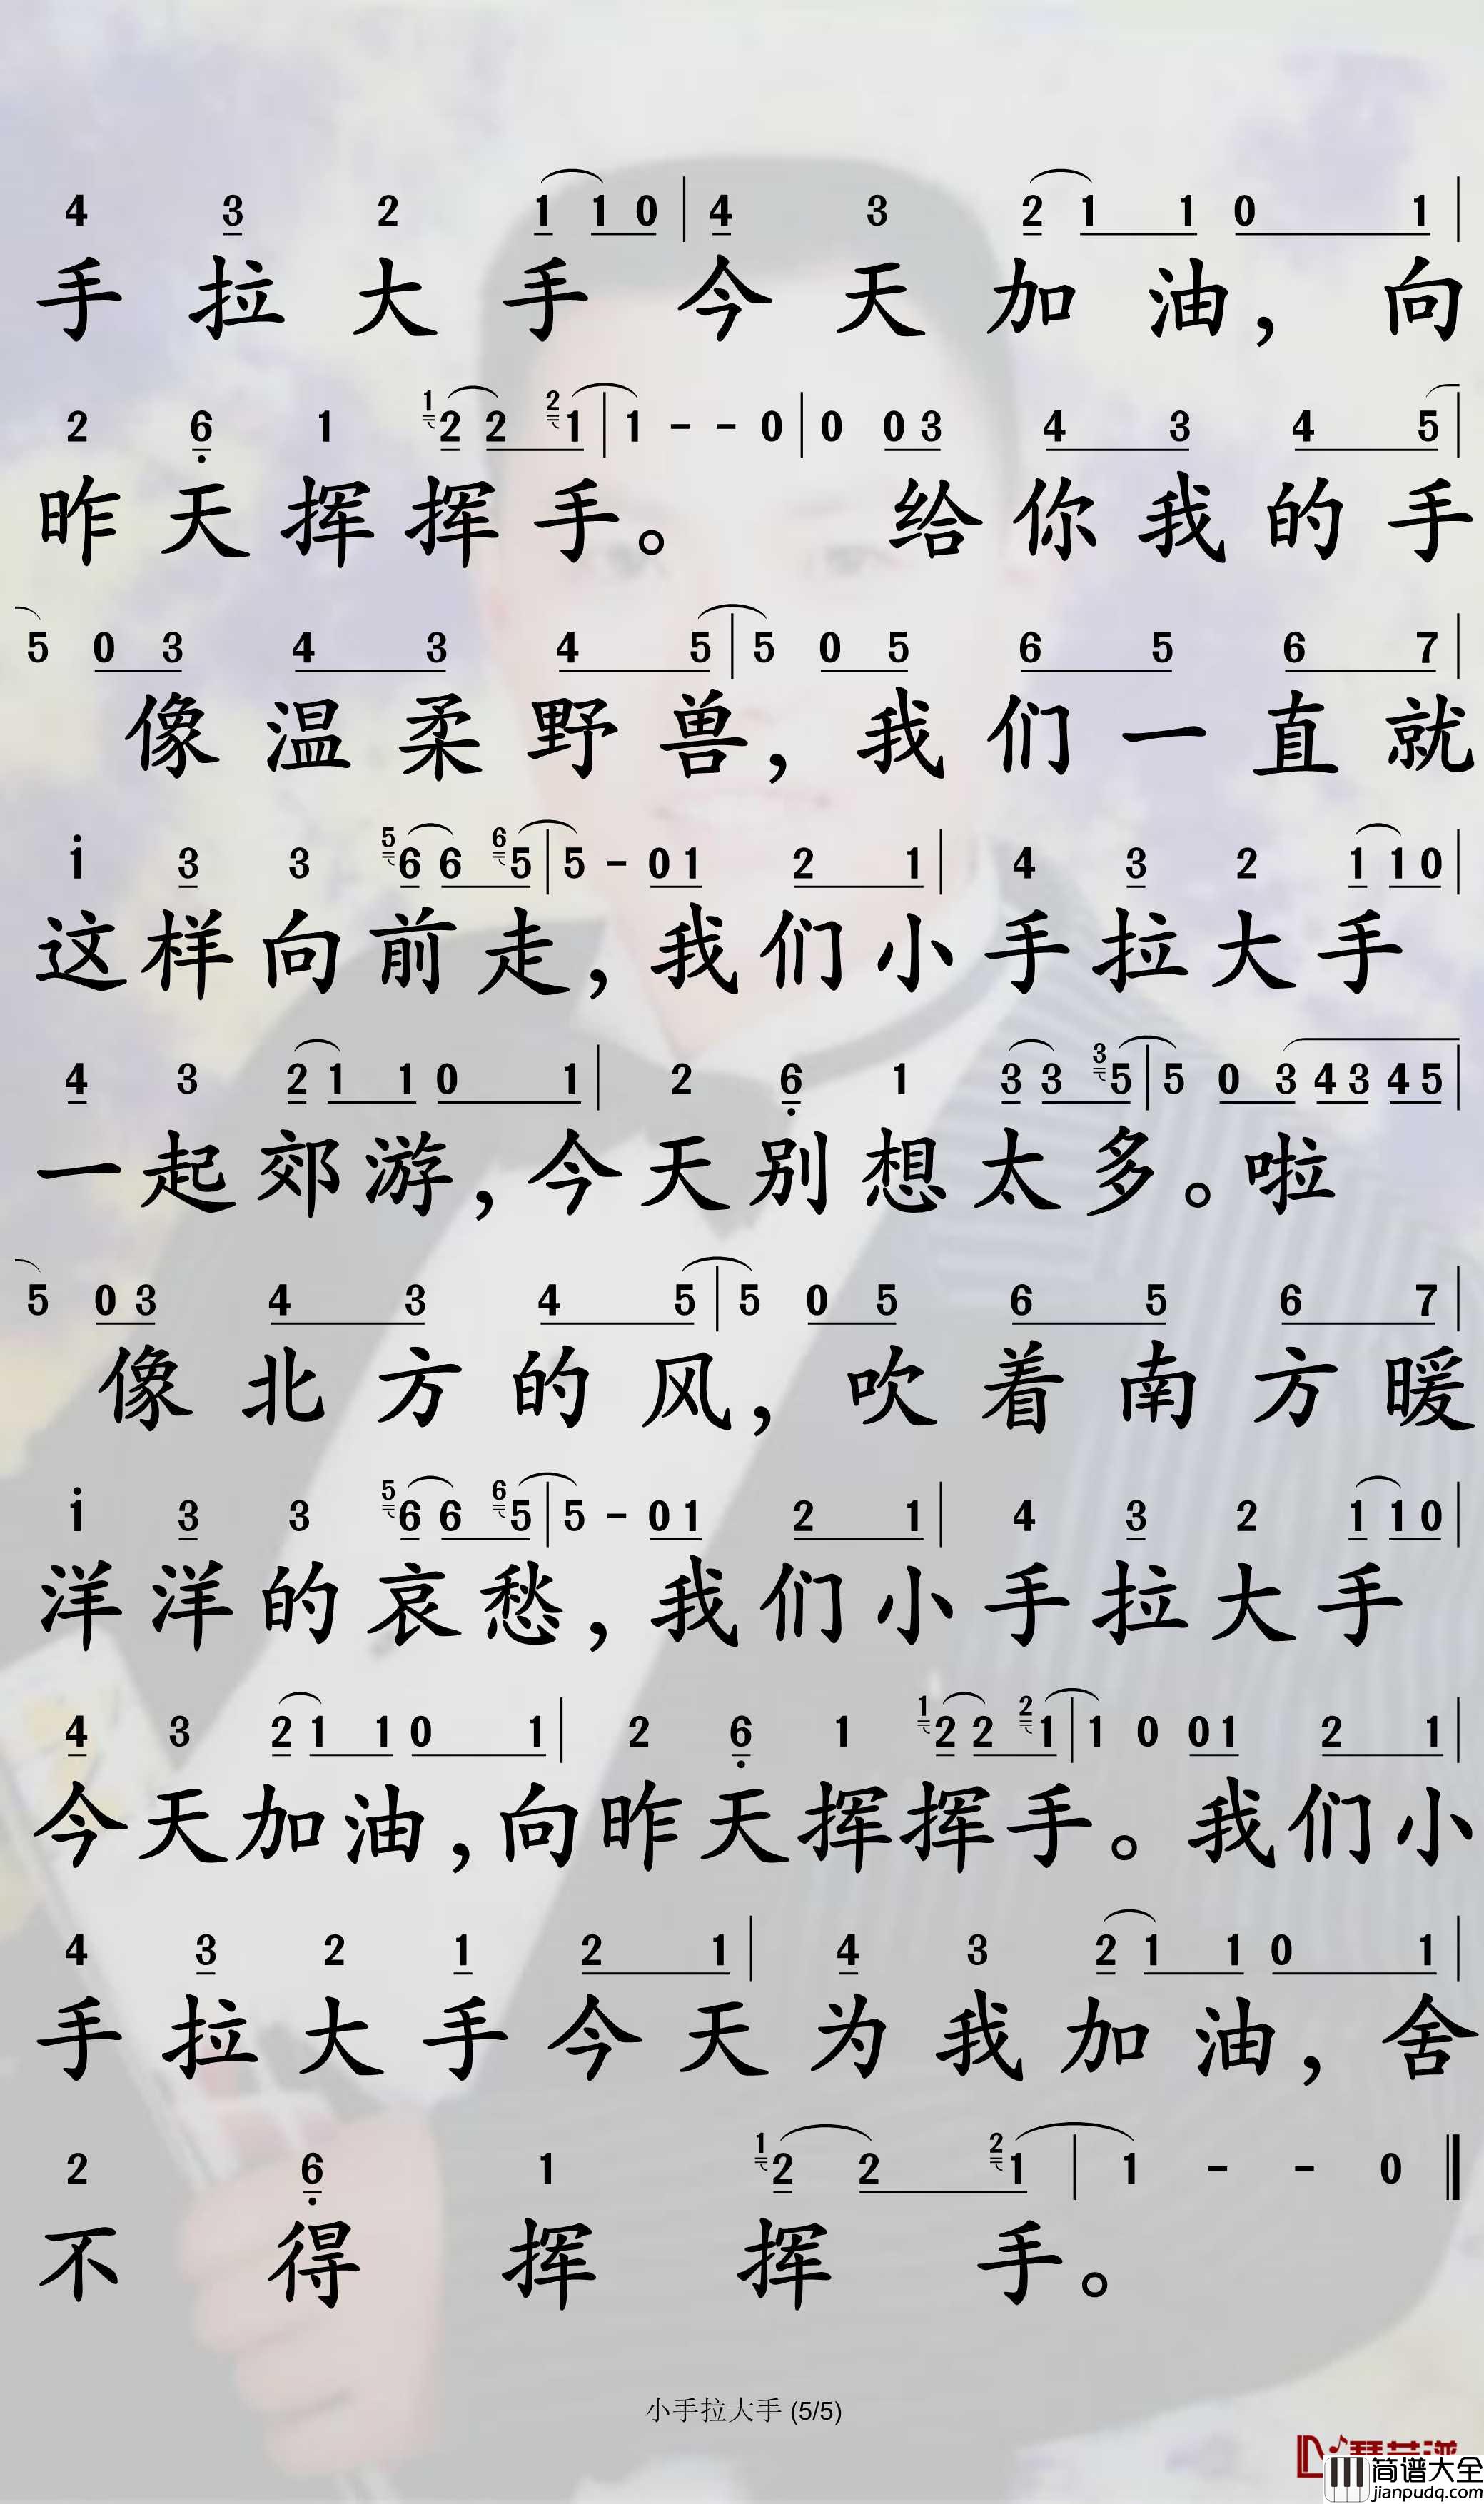 4 3 2 1 1 0 | 4 3 2 1 1 0 1 |
手拉大手今天加油，向
2 6 1 1 2 2 2 1 | 1 - - 0 | 0 0 3 4 3 4 5 |
昨天挥挥手。给你我的手
5 0 3 4 3 4 5 | 5 0 5 6 5 6 7 |
像温柔野兽，我们一直就
1 3 3 5 6 6 6 5 | 5 - 0 1 2 1 | 4 3 2 1 1 0 |
这样向前走，我们小手拉大手
4 3 2 1 1 0 1 | 2 6 1 3 3 3 5 | 5 0 3 4 3 4 5 |
一起郊游，今天别想太多。啦
5 0 3 4 3 4 5 | 5 0 5 6 5 6 7 |
像北方的风，吹着南方暖
1 3 3 5 6 6 6 5 | 5 - 0 1 2 1 | 4 3 2 1 1 0 |
洋洋的哀愁，我们小手拉大手
4 3 2 1 1 0 1 | 2 6 1 1 2 2 2 1 | 1 0 0 1 2 1 |
今天加油，向昨天挥挥手。我们小
4 3 2 1 2 1 | 4 3 2 1 1 0 1 |
手拉大手今天为我加油，舍
2 6 1 1 2 2 2 1 | 1 - - 0 ‖
不得挥挥手。
小手拉大手 (5/5)
简谱大全
jianpudq.com